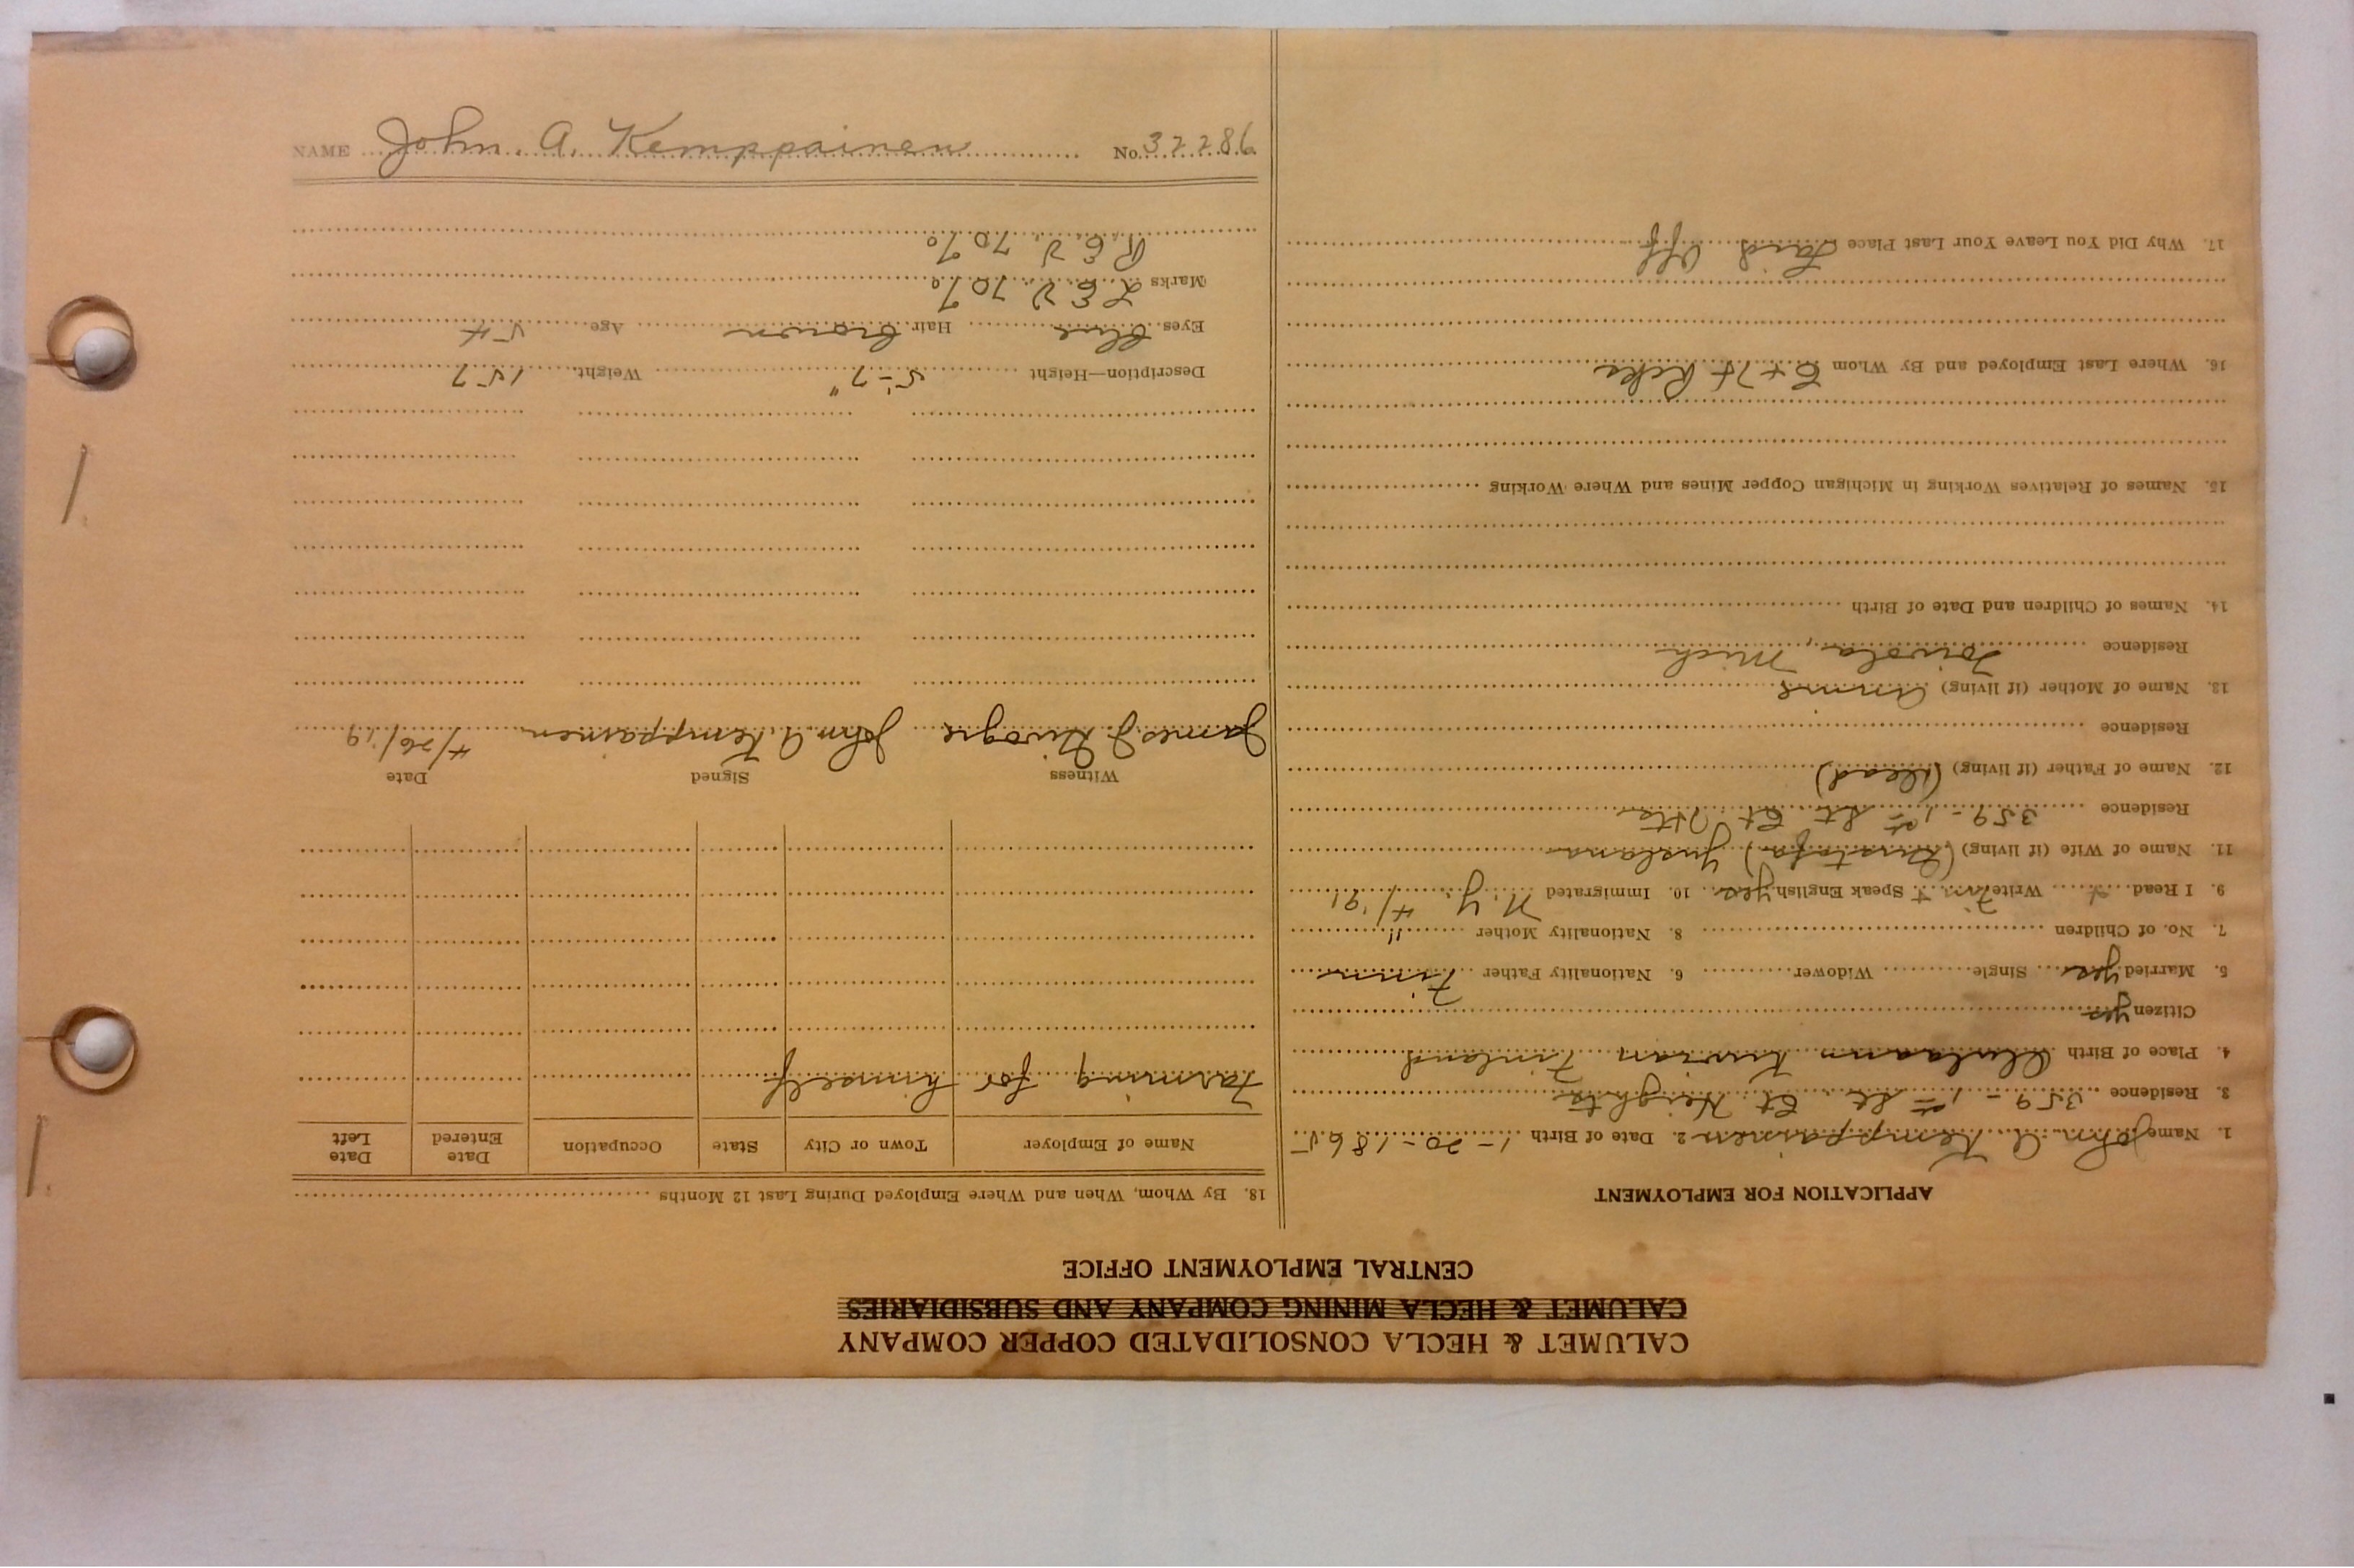 CALUMET & HECLA CONSOLIDATED COPPER COMPANY
CALUMET & HECLA MINING COMPANY AND SUBSIDIARIES
CENTRAL EMPLOYMENT OFFICE
APPLICATION FOR EMPLOYMENT
1. Name John A. Kemppainen 2. Date of Birth 1-20-1865
3. Residence 359-1st St. Heights
4. Place of Birth Finland
Citizen yes
5. Married yes Single Widower 6. Nationality Father Finn
7. No. of Children 8. Nationality Mother "
9. I Read Write Finn Speak English yes 10. Immigrated N.Y. 4/'91
11. Name of Wife (if living)
Residence 359-1st St.
12. Name of Father (if living) (Dead)
Residence
13. Name of Mother (if living) Anna
Residence Toivola, Mich
14. Names of Children and Date of Birth
15. Names of Relatives Working in Michigan Copper Mines and Where Working
16. Where Last Employed and By Whom
17. Why Did You Leave Your Last Place Laid Off
18. By Whom, When and Where Employed During Last 12 Months
Name of Employer Town or City State Occupation Date Entered Date Left
Farming for himself
Witness Signed Date
James J. John A. Kemppainen 4/26/19
Description—Height 5'-7" Weight 157
Eyes blue Hair brown Age 54
Marks L E V 70%
R. E. V. 70%
NAME John. A. Kemppainen No. 37286